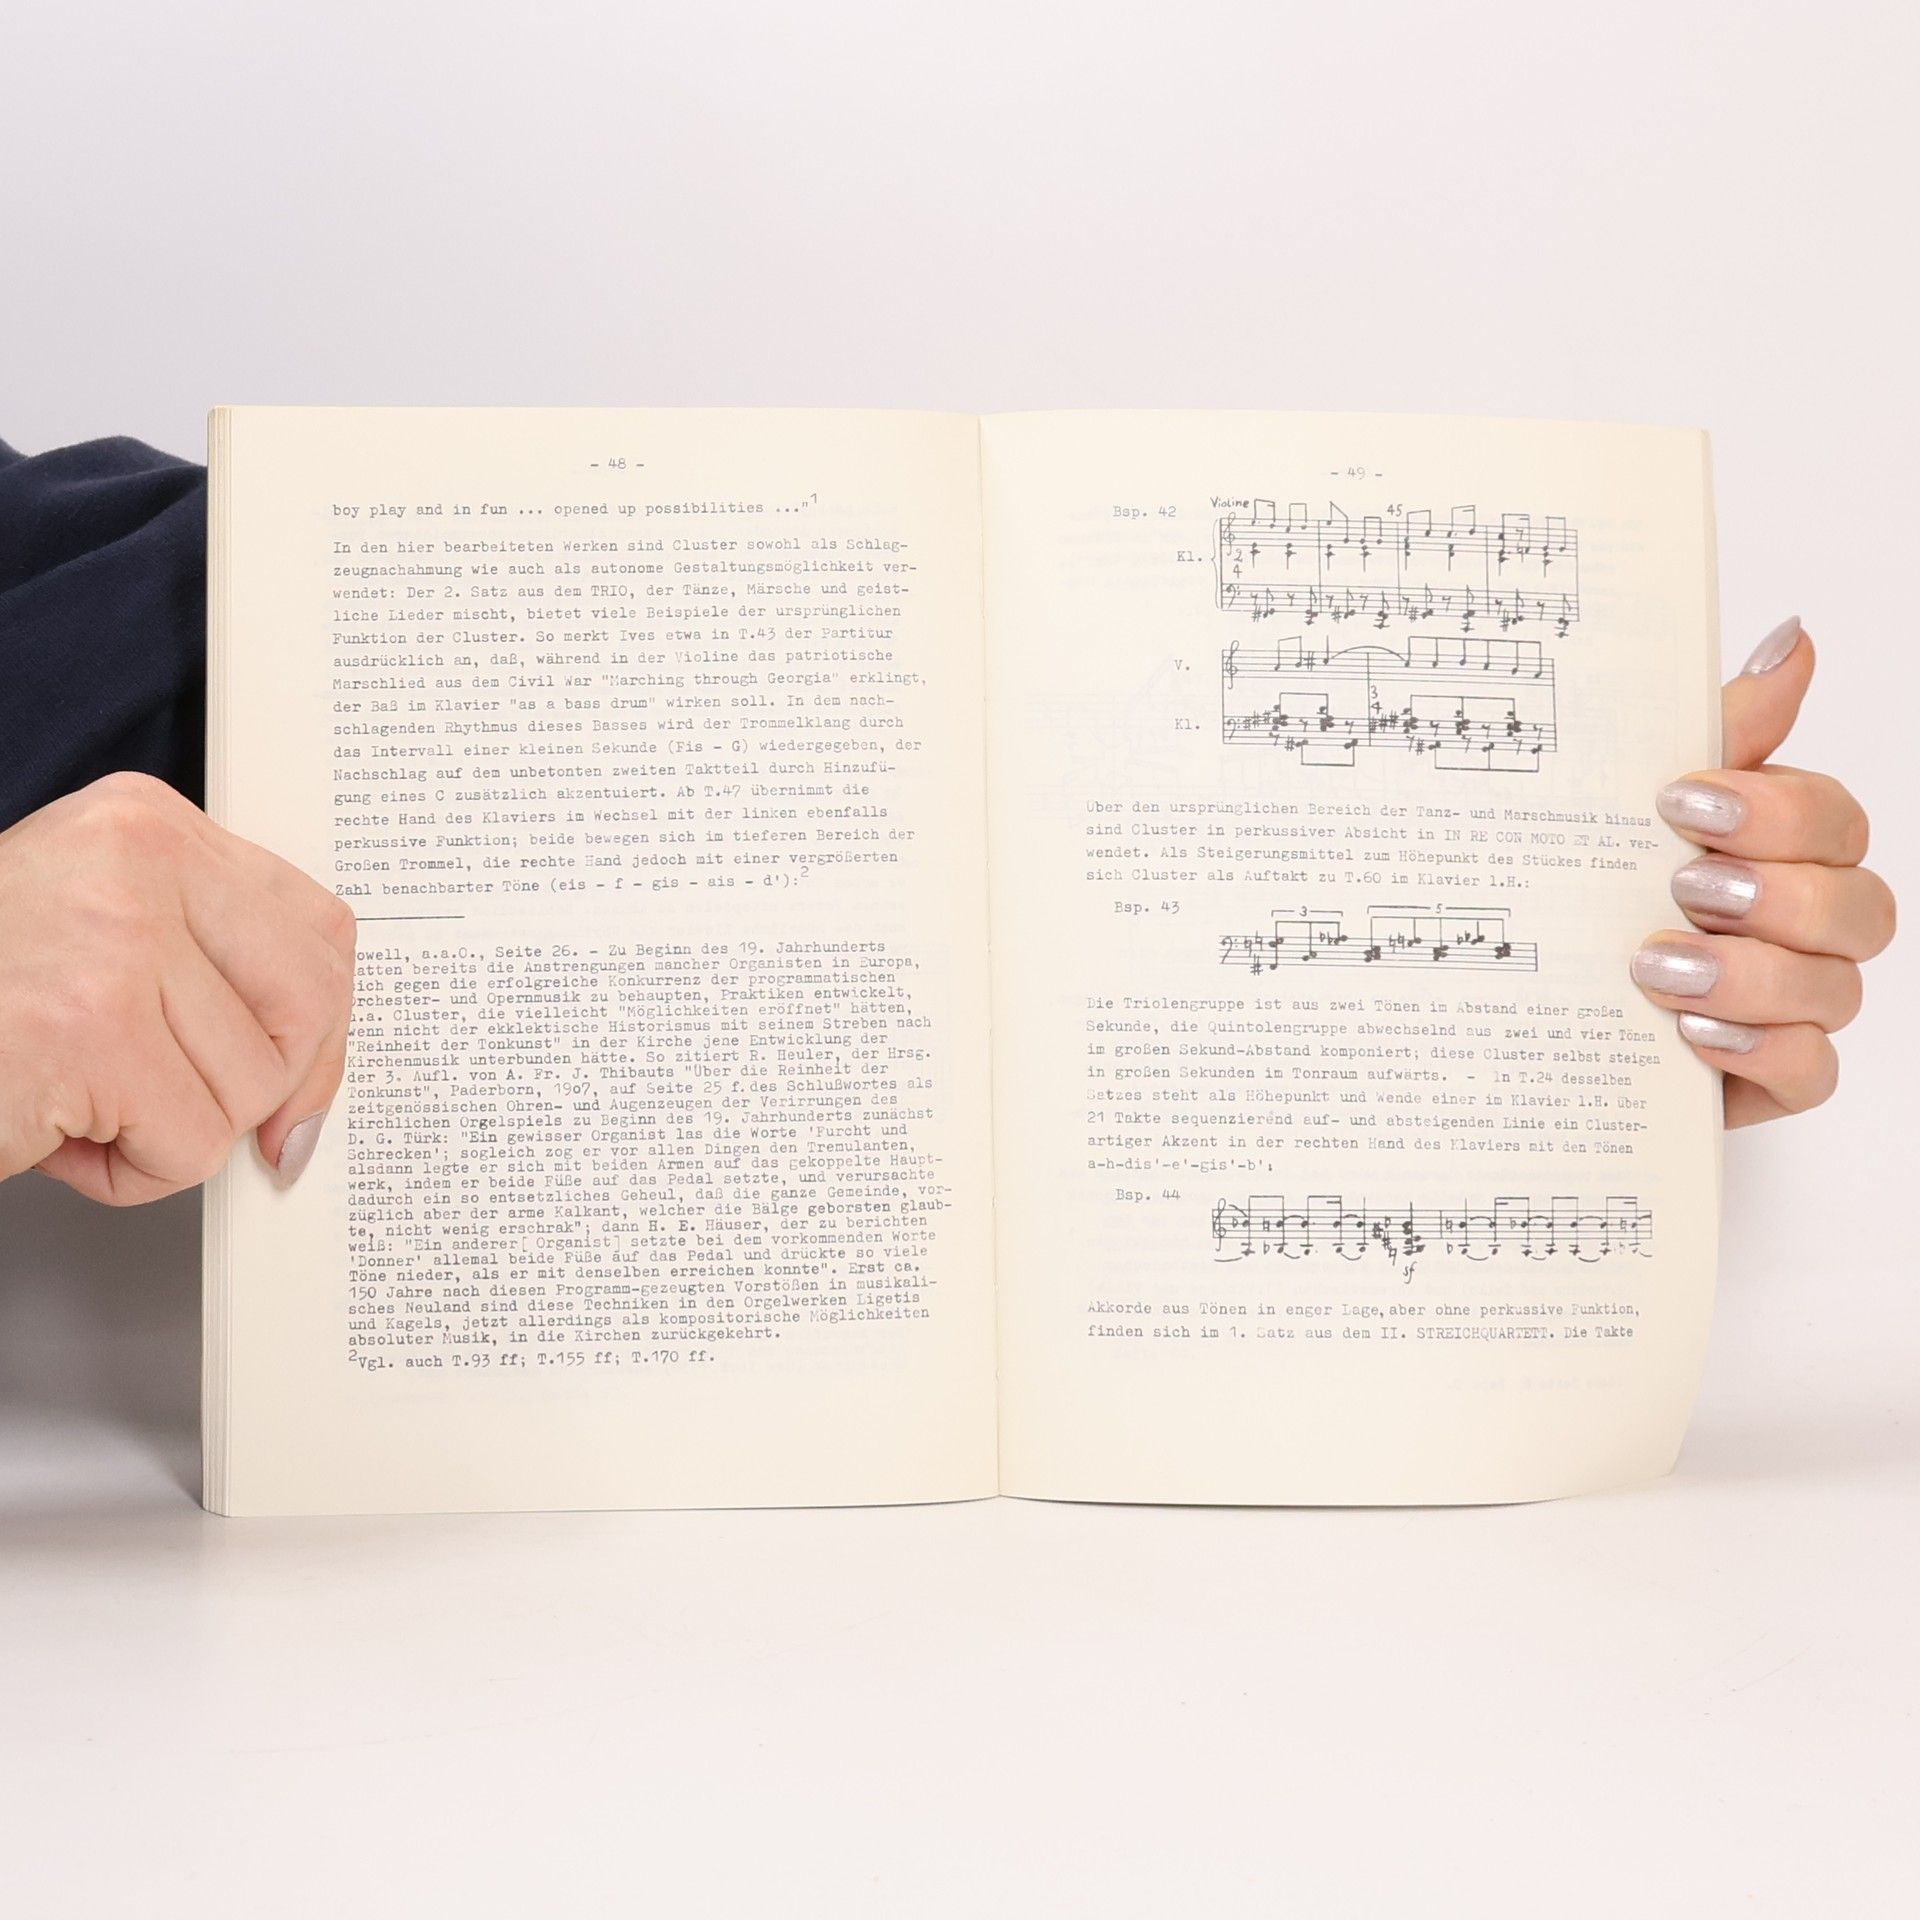 - 48 -
boy play and in fun ... opened up possibilities ..."1
In den hier bearbeiteten Werken sind Cluster sowohl als Schlag-
zeugnachahmung wie auch als autonome Gestaltungsmöglichkeit ver-
wendet: Der 2. Satz aus dem TRIO, der Tänze, Märsche und geist-
liche Lieder mischt, bietet viele Beispiele der ursprünglichen
Funktion der Cluster. So merkt Ives etwa in T.43 der Partitur
ausdrücklich an, daß, während in der Violine das patriotische
Marschlied aus dem Civil War "Marching through Georgia" erklingt,
der Baß im Klavier "as a bass drum" wirken soll. In dem nach-
schlagenden Rhythmus dieses Basses wird der Trommelklang durch
das Intervall einer kleinen Sekunde (Fis - G) wiedergegeben, der
Nachschlag auf dem unbetonten zweiten Taktteil durch Hinzufü-
gung eines C zusätzlich akzentuiert. Ab T.47 übernimmt die
rechte Hand des Klaviers im Wechsel mit der linken ebenfalls
perkussive Funktion; beide bewegen sich im tieferen Bereich der
Großen Trommel, die rechte Hand jedoch mit einer vergrößerten
Zahl benachbarter Töne (eis - f - gis - ais - d'):2
owell, a.a.O., Seite 26. - Zu Beginn des 19. Jahrhunderts
atten bereits die Anstrengungen mancher Organisten in Europa,
ich gegen die erfolgreiche Konkurrenz der programmatischen
rchester- und Opernmusik zu behaupten, Praktiken entwickelt,
.a. Cluster, die vielleicht "Möglichkeiten eröffnet" hätten,
wenn nicht der ekklektische Historismus mit seinem Streben nach
"Reinheit der Tonkunst" in der Kirche jene Entwicklung der
Kirchenmusik unterbunden hätte. So zitiert R. Heuler, der Hrsg.
der 3. Aufl. von A. Fr. J. Thibauts "Über die Reinheit der
Tonkunst", Paderborn, 19o7, auf Seite 25 f. des Schlußwortes als
zeitgenössischen Ohren- und Augenzeugen der Verirrungen des
kirchlichen Orgelspiels zu Beginn des 19. Jahrhunderts zunächst
D. G. Türk: "Ein gewisser Organist las die Worte 'Furcht und
Schrecken'; sogleich zog er vor allen Dingen den Tremulanten,
alsdann legte er sich mit beiden Armen auf das gekoppelte Haupt-
werk, indem er beide Füße auf das Pedal setzte, und verursachte
dadurch ein so entsetzliches Geheul, daß die ganze Gemeinde, vor-
züglich aber der arme Kalkant, welcher die Bälge geborsten glaub-
te, nicht wenig erschrak"; dann H. E. Häuser, der zu berichten
weiß: "Ein anderer[ Organist] setzte bei dem vorkommenden Worte
'Donner' allemal beide Füße auf das Pedal und drückte so viele
Töne nieder, als er mit denselben erreichen konnte". Erst ca.
150 Jahre nach diesen Programm-gezeugten Vorstößen in musikali-
sches Neuland sind diese Techniken in den Orgelwerken Ligetis
und Kagels, jetzt allerdings als kompositorische Möglichkeiten
absoluter Musik, in die Kirchen zurückgekehrt.
2Vgl. auch T.93 ff; T.155 ff; T.170 ff.
- 49 -
Bsp. 42
Violine
45
Kl.
2
4
V.
3
4
Kl.
Über den ursprünglichen Bereich der Tanz- und Marschmusik hinaus
sind Cluster in perkussiver Absicht in IN RE CON MOTO ET AL. ver-
wendet. Als Steigerungsmittel zum Höhepunkt des Stückes finden
sich Cluster als Auftakt zu T.60 im Klavier l.H.:
Bsp. 43
3 5
Die Triolengruppe ist aus zwei Tönen im Abstand einer großen
Sekunde, die Quintolengruppe abwechselnd aus zwei und vier Tönen
im großen Sekund-Abstand komponiert; diese Cluster selbst steigen
in großen Sekunden im Tonraum aufwärts. - In T.24 desselben
Satzes steht als Höhepunkt und Wende einer im Klavier l.H. über
21 Takte sequenzierend auf- und absteigenden Linie ein Cluster-
artiger Akzent in der rechten Hand des Klaviers mit den Tönen
a-h-dis'-e'-gis'-b':
Bsp. 44
sf
Akkorde aus Tönen in enger Lage, aber ohne perkussive Funktion,
finden sich im 1. Satz aus dem II. STREICHQUARTETT. Die Takte